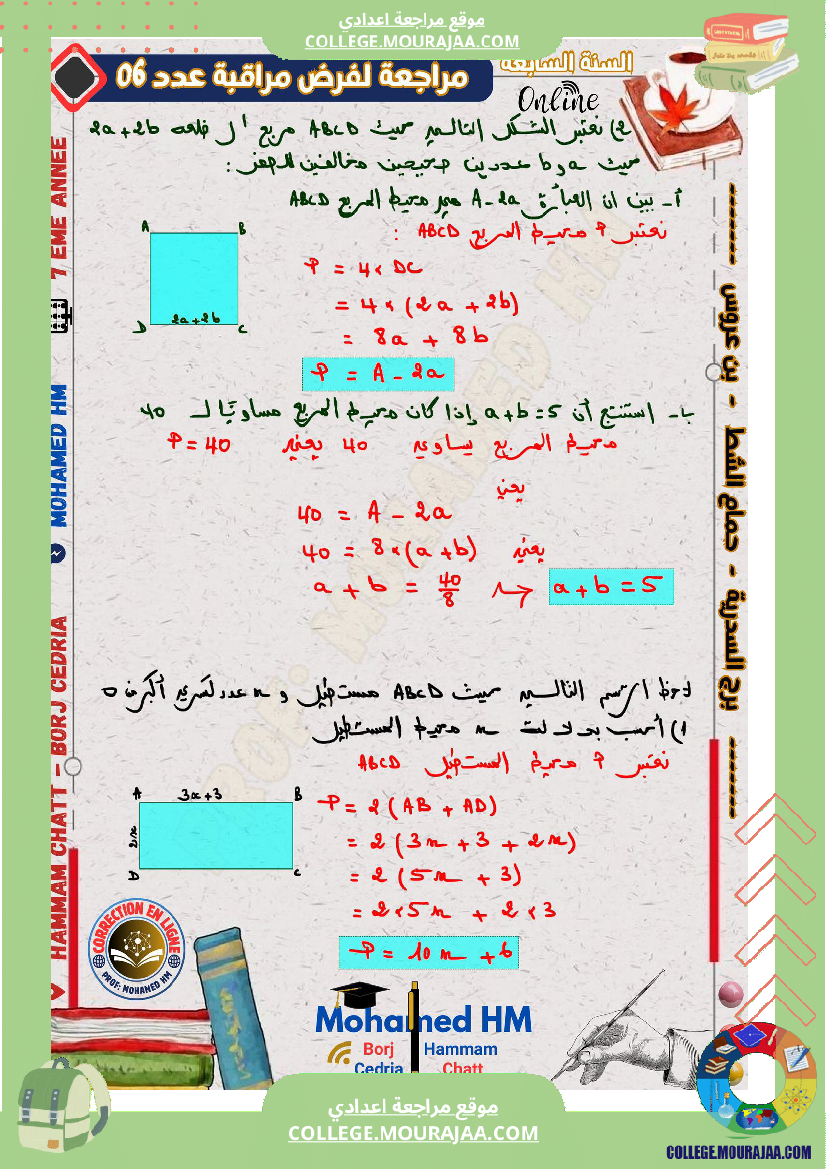 موقع مراجعة اعدادي
COLLEGE.MOURAJAA.COM
السنة السابعة
مراجعة لفرض مراقبة عدد 06
Online
2) نعتبر الشكل التالي حيث ABCD مربع طول ضلعه 2a+2b
حيث a و b عددين صحيحين مخالفين للصفر :
أ- بين ان العبارة A-2a هي محيط المربع ABCD
نعتبر P محيط المربع ABCD :
A B
D 2a+2b C
P = 4 × DC
= 4 × (2a + 2b)
= 8a + 8b
P = A - 2a
ب- استنتج أن a+b=5 إذا كان محيط المربع مساويًا لـ 40
محيط المربع يساوي 40 يعني P=40
يعني
40 = A - 2a
يعني 40 = 8×(a+b)
a + b = 40/8 a+b=5
لاحظ الرسم التالي حيث ABCD مستطيل و x عدد كسري أكبر من 0
1) أحسب بدلالة x محيط المستطيل
نعتبر P محيط المستطيل ABCD
A 3x+3 B
2x
D C
P = 2 (AB + AD)
= 2 (3x + 3 + 2x)
= 2 (5x + 3)
= 2×5x + 2×3
P = 10x + 6
7 EME ANNEE
MOHAMED HM
HAMMAM CHATT - BORJ CEDRIA
برج السدرية - حمام الشط - بن عروس
PROF: MOHAMED HM
CORRECTION EN LIGNE
PROF: MOHAMED HM
Mohamed HM
Borj Hammam
Cedria Chatt
موقع مراجعة اعدادي
COLLEGE.MOURAJAA.COM
COLLEGE.MOURAJAA.COM